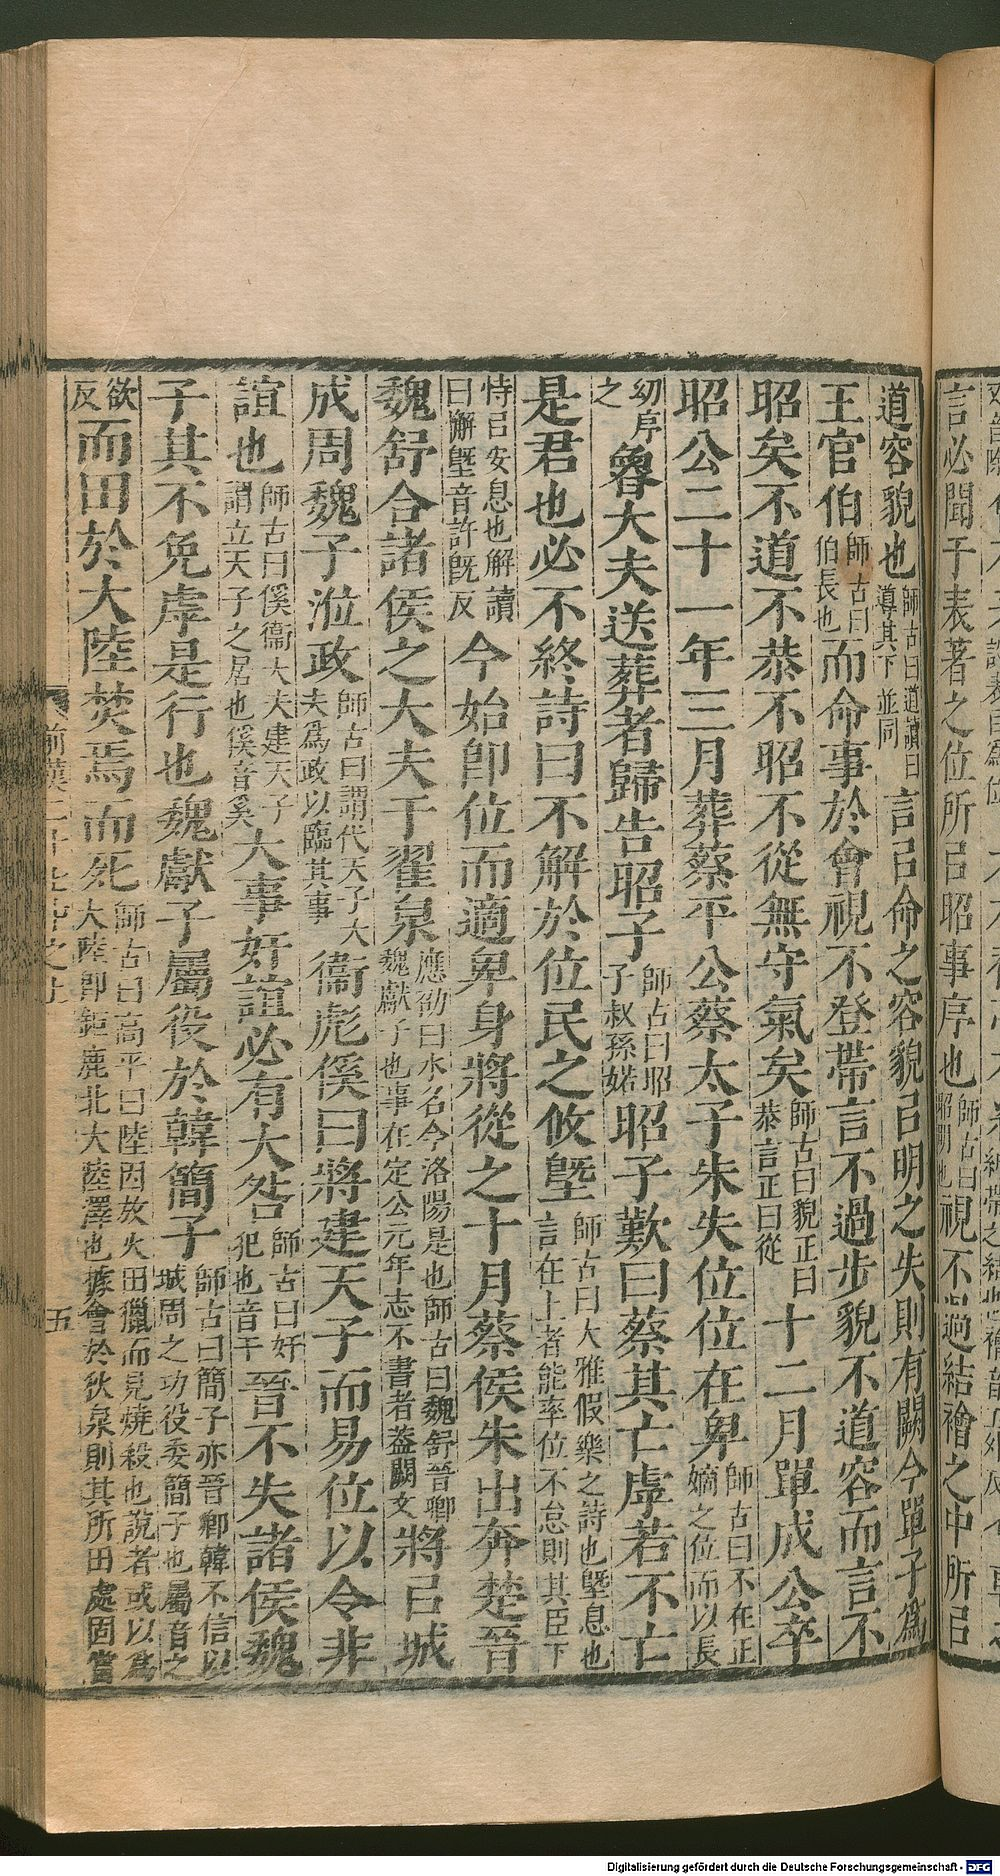 言必聞于表著之位所㠯昭事序也師古曰昭明也視不過結襘之中所㠯
道容貌也師古曰道讀曰導其下並同言㠯命之容貌㠯明之失則有闕今單子為
王官伯師古曰伯長也而命事於會視不登帶言不過步貌不道容而言不
昭矣不道不恭不昭不從無守氣矣師古曰貌正曰恭言正曰從十二月單成公卒
昭公二十一年三月葬蔡平公蔡太子朱失位位在卑師古曰不在正嫡之位而以長
幼序之魯大夫送葬者歸告昭子師古曰昭子叔孫婼昭子歎曰蔡其亡虖若不亡
是君也必不終詩曰不解於位民之攸塈師古曰大雅假樂之詩也塈息也言在上者能率位不怠則其臣下
恃㠯安息也解讀曰懈塈音許旣反今始卽位而適卑身將從之十月蔡侯朱出奔楚晉
魏舒合諸侯之大夫于翟泉應劭曰水名今洛陽是也師古曰魏舒晉卿魏獻子也事在定公元年志不書者葢闕文將㠯城
成周魏子涖政師古曰謂代天子大夫為政以臨其事衞彪傒曰將建天子而易位以令非
誼也師古曰傒衞大夫建天子謂立天子之居也傒音奚大事奸誼必有大咎師古曰奸犯也音干晉不失諸侯魏
子其不免虖是行也魏獻子屬役於韓簡子師古曰簡子亦晉卿韓不信以城周之功役委簡子也屬音之
欲反而田於大陸焚焉而死師古曰高平曰陸因放火田獵而見燒殺也說者或以為大陸卽鉅鹿北大陸澤也據會於狄泉則其所田處固當
前漢
五
Digitalisierung gefördert durch die Deutsche Forschungsgemeinschaft - DFG